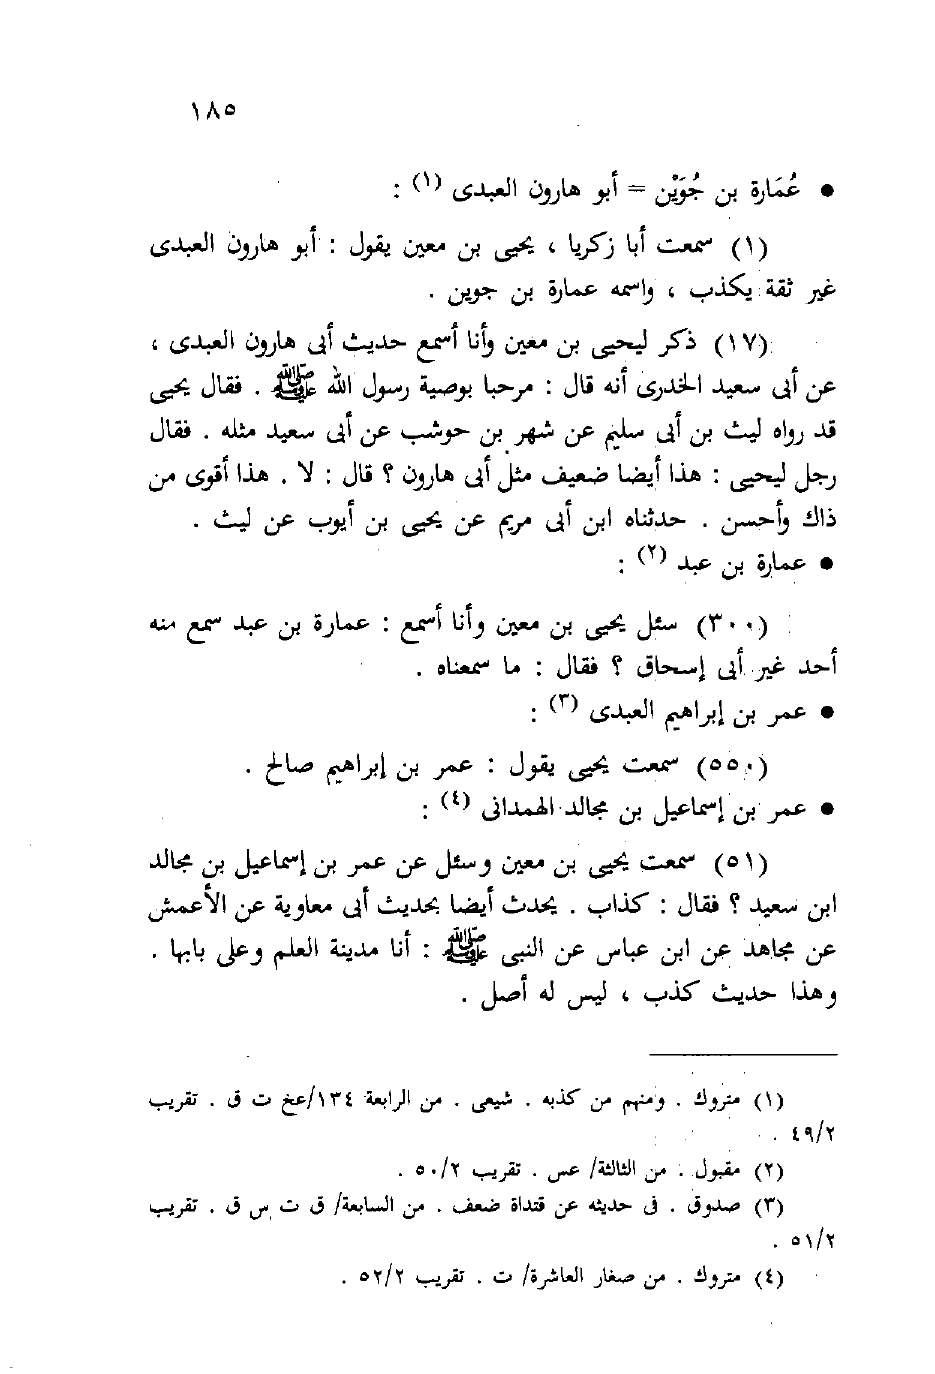 ١٨٥
● عُمَارة بن جُوَيْن = أبو هارون العبدى (١) :
(١) سمعت أبا زكريا ، يحيى بن معين يقول : أبو هارون العبدى
غير ثقة يكذب ، واسمه عمارة بن جوين .
(١٧) ذكر ليحيى بن معين وأنا أسمع حديث أبى هارون العبدى ،
عن أبى سعيد الخدرى أنه قال : مرحبا بوصية رسول الله ﷺ . فقال يحيى
قد رواه ليث بن أبى سليم عن شهر بن حوشب عن أبى سعيد مثله . فقال
رجل ليحيى : هذا أيضا ضعيف مثل أبى هارون ؟ قال : لا . هذا أقوى من
ذاك وأحسن . حدثناه ابن أبى مريم عن يحيى بن أيوب عن ليث .
● عمارة بن عبد (٢) :
(٣٠٠) سئل يحيى بن معين وأنا أسمع : عمارة بن عبد سمع منه
أحد غير أبى إسحاق ؟ فقال : ما سمعناه .
● عمر بن إبراهيم العبدى (٣) :
(٥٥٠) سمعت يحيى يقول : عمر بن إبراهيم صالح .
● عمر بن إسماعيل بن مجالد الهمدانى (٤) :
(٥١) سمعت يحيى بن معين وسئل عن عمر بن إسماعيل بن مجالد
ابن سعيد ؟ فقال : كذاب . يحدث أيضا بحديث أبى معاوية عن الأعمش
عن مجاهد عن ابن عباس عن النبى ﷺ : أنا مدينة العلم وعلى بابها .
وهذا حديث كذب ، ليس له أصل .
(١) متروك . ومنهم من كذبه . شيعى . من الرابعة ١٣٤/عخ ت ق . تقريب
٤٩/٢ .
(٢) مقبول . من الثالثة/ عس . تقريب ٥٠/٢ .
(٣) صدوق . فى حديثه عن قتداة ضعف . من السابعة/ ق ت س ق . تقريب
٥١/٢ .
(٤) متروك . من صغار العاشرة/ ت . تقريب ٥٢/٢ .